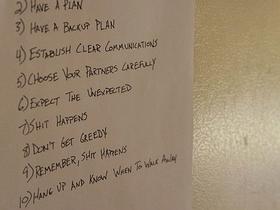 2) HAVE A PLAN
3) HAVE A BACKUP PLAN
4) ESTABLISH CLEAR COMMUNICATIONS
5) CHOOSE YOUR PARTNERS CAREFULLY
6) EXPECT THE UNEXPECTED
7) SHIT HAPPENS
8) DON'T GET GREEDY
9) REMEMBER, SHIT HAPPENS
10) HANG UP AND KNOW WHEN TO WALK AWAY